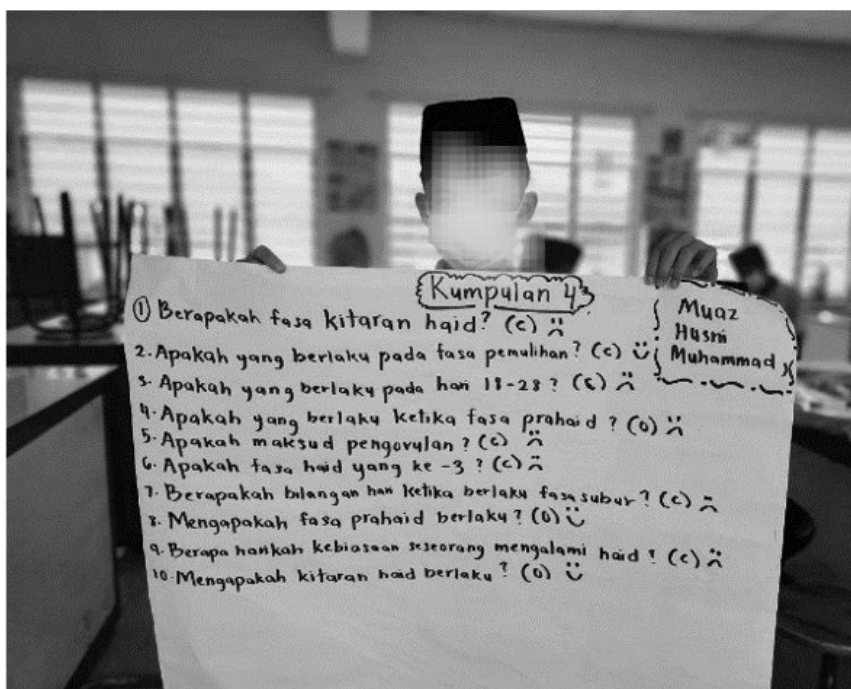 Kumpulan 4
Muaz
Husni
Muhammad
① Berapakah fasa kitaran haid? (c)
2. Apakah yang berlaku pada fasa pemulihan? (c)
3. Apakah yang berlaku pada hari 18-28? (c)
4. Apakah yang berlaku ketika fasa prahaid? (O)
5. Apakah maksud pengovulan? (c)
6. Apakah fasa haid yang ke-3? (c)
7. Berapakah bilangan hari ketika berlaku fasa subur? (c)
8. Mengapakah fasa prahaid berlaku? (O)
9. Berapa harikah kebiasaan seseorang mengalami haid? (c)
10. Mengapakah kitaran haid berlaku? (O)